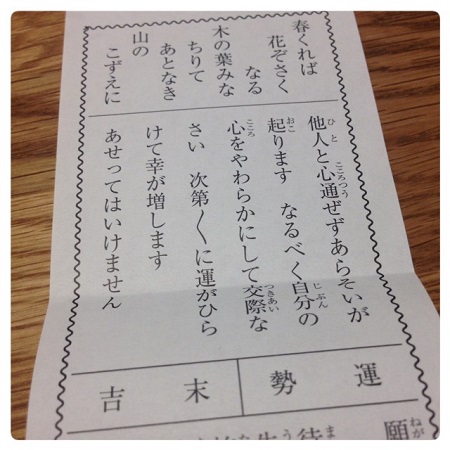 春くれば
花ぞさく
なる
木の葉みな
ちりて
あとなき
山の
こずえに
他人と心通ぜずあらそいが
ひと こころつう
起ります なるべく自分の
おこ じぶん
心をやわらかにして交際な
こころ つきあい
さい 次第〱に運がひら
けて幸が増します
あせってはいけません
運勢
末吉
願
ねが
待
ま